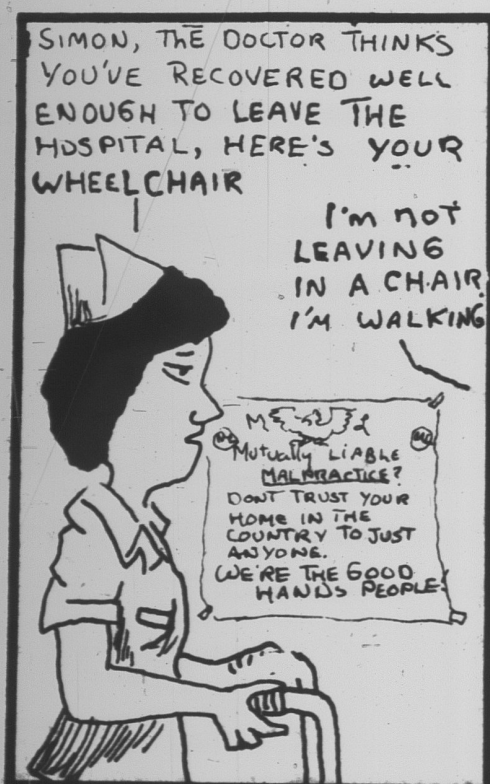 SIMON, THE DOCTOR THINKS
YOU'VE RECOVERED WELL
ENOUGH TO LEAVE THE
HOSPITAL, HERE'S YOUR
WHEELCHAIR
I'M NOT
LEAVING
IN A CHAIR
I'M WALKING
M L
MUTUALLY LIABLE
MALPRACTICE?
DONT TRUST YOUR
HOME IN THE
COUNTRY TO JUST
ANYONE.
WE'RE THE GOOD
HANDS PEOPLE!